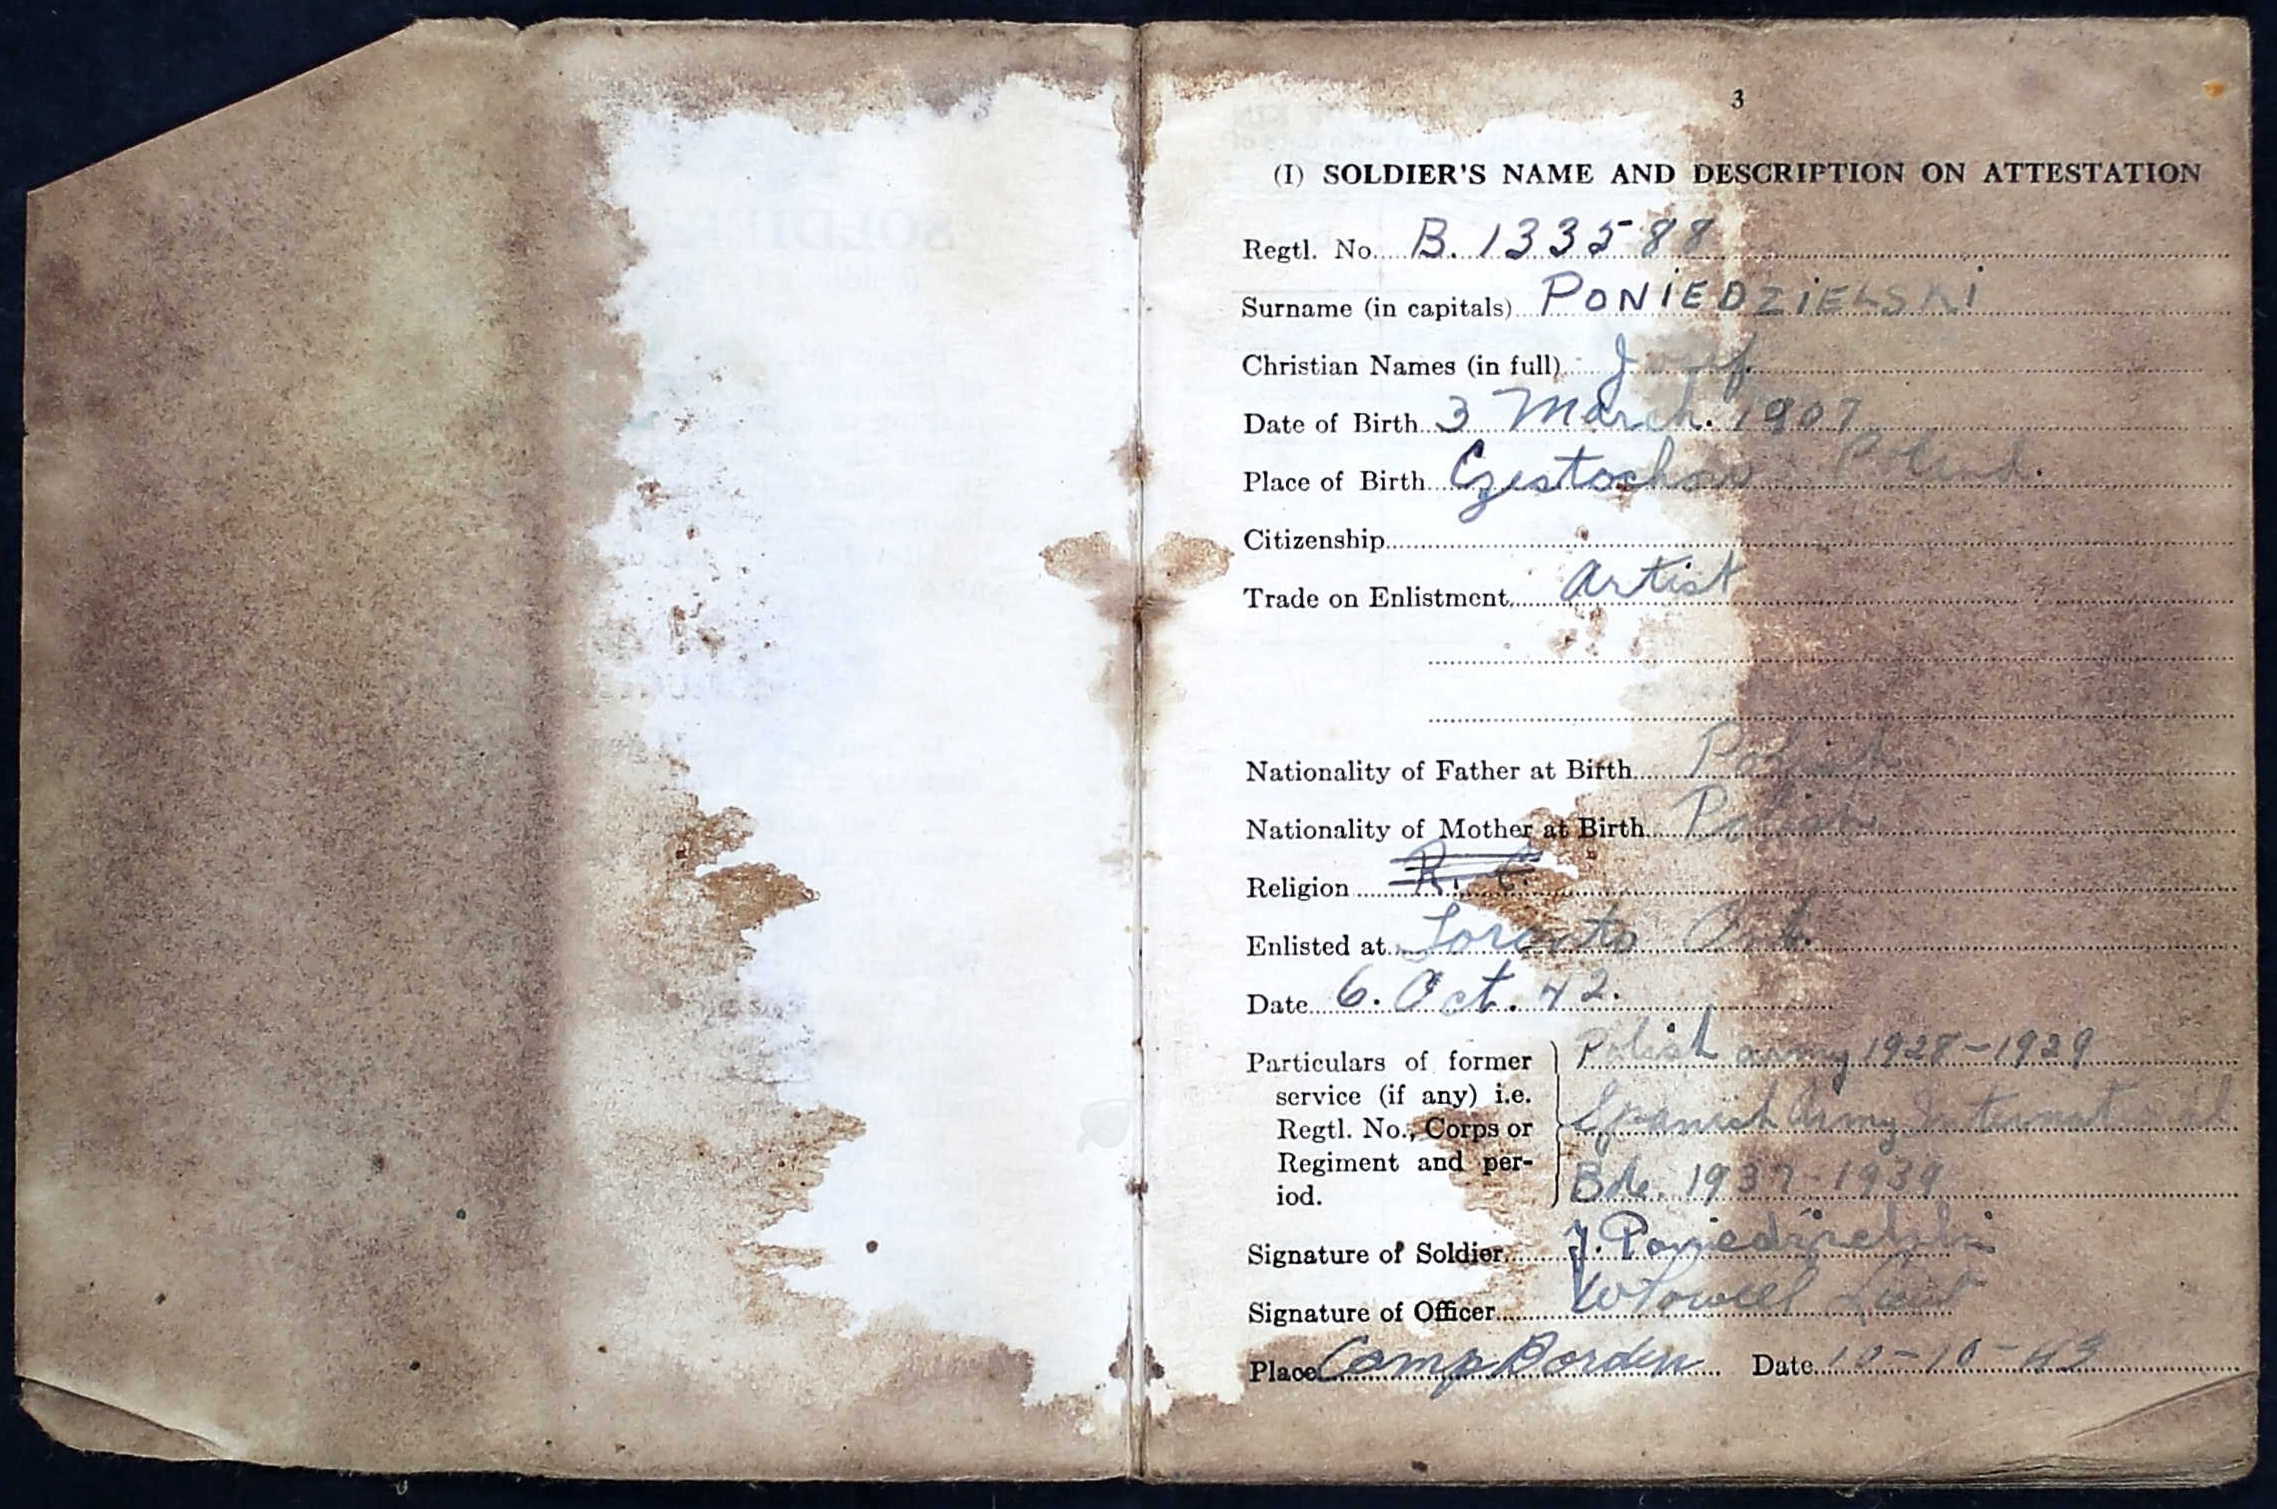 3
(I) SOLDIER'S NAME AND DESCRIPTION ON ATTESTATION
Regtl. No. B. 133588
Surname (in capitals) PONIEDZIELSKI
Christian Names (in full) Jozef.
Date of Birth 3 March. 1907
Place of Birth Czestochow Poland.
Citizenship
Trade on Enlistment Artist
Nationality of Father at Birth Polish
Nationality of Mother at Birth Polish
Religion R. C.
Enlisted at Toronto Ont.
Date 6. Oct. 42.
Particulars of former service (if any) i.e. Regtl. No., Corps or Regiment and per-iod.
Polish army 1928-1929
Spanish Army International
Bde. 1937-1939
Signature of Soldier J. Poniedzielski
Signature of Officer
Place Camp Borden Date 10-10-43